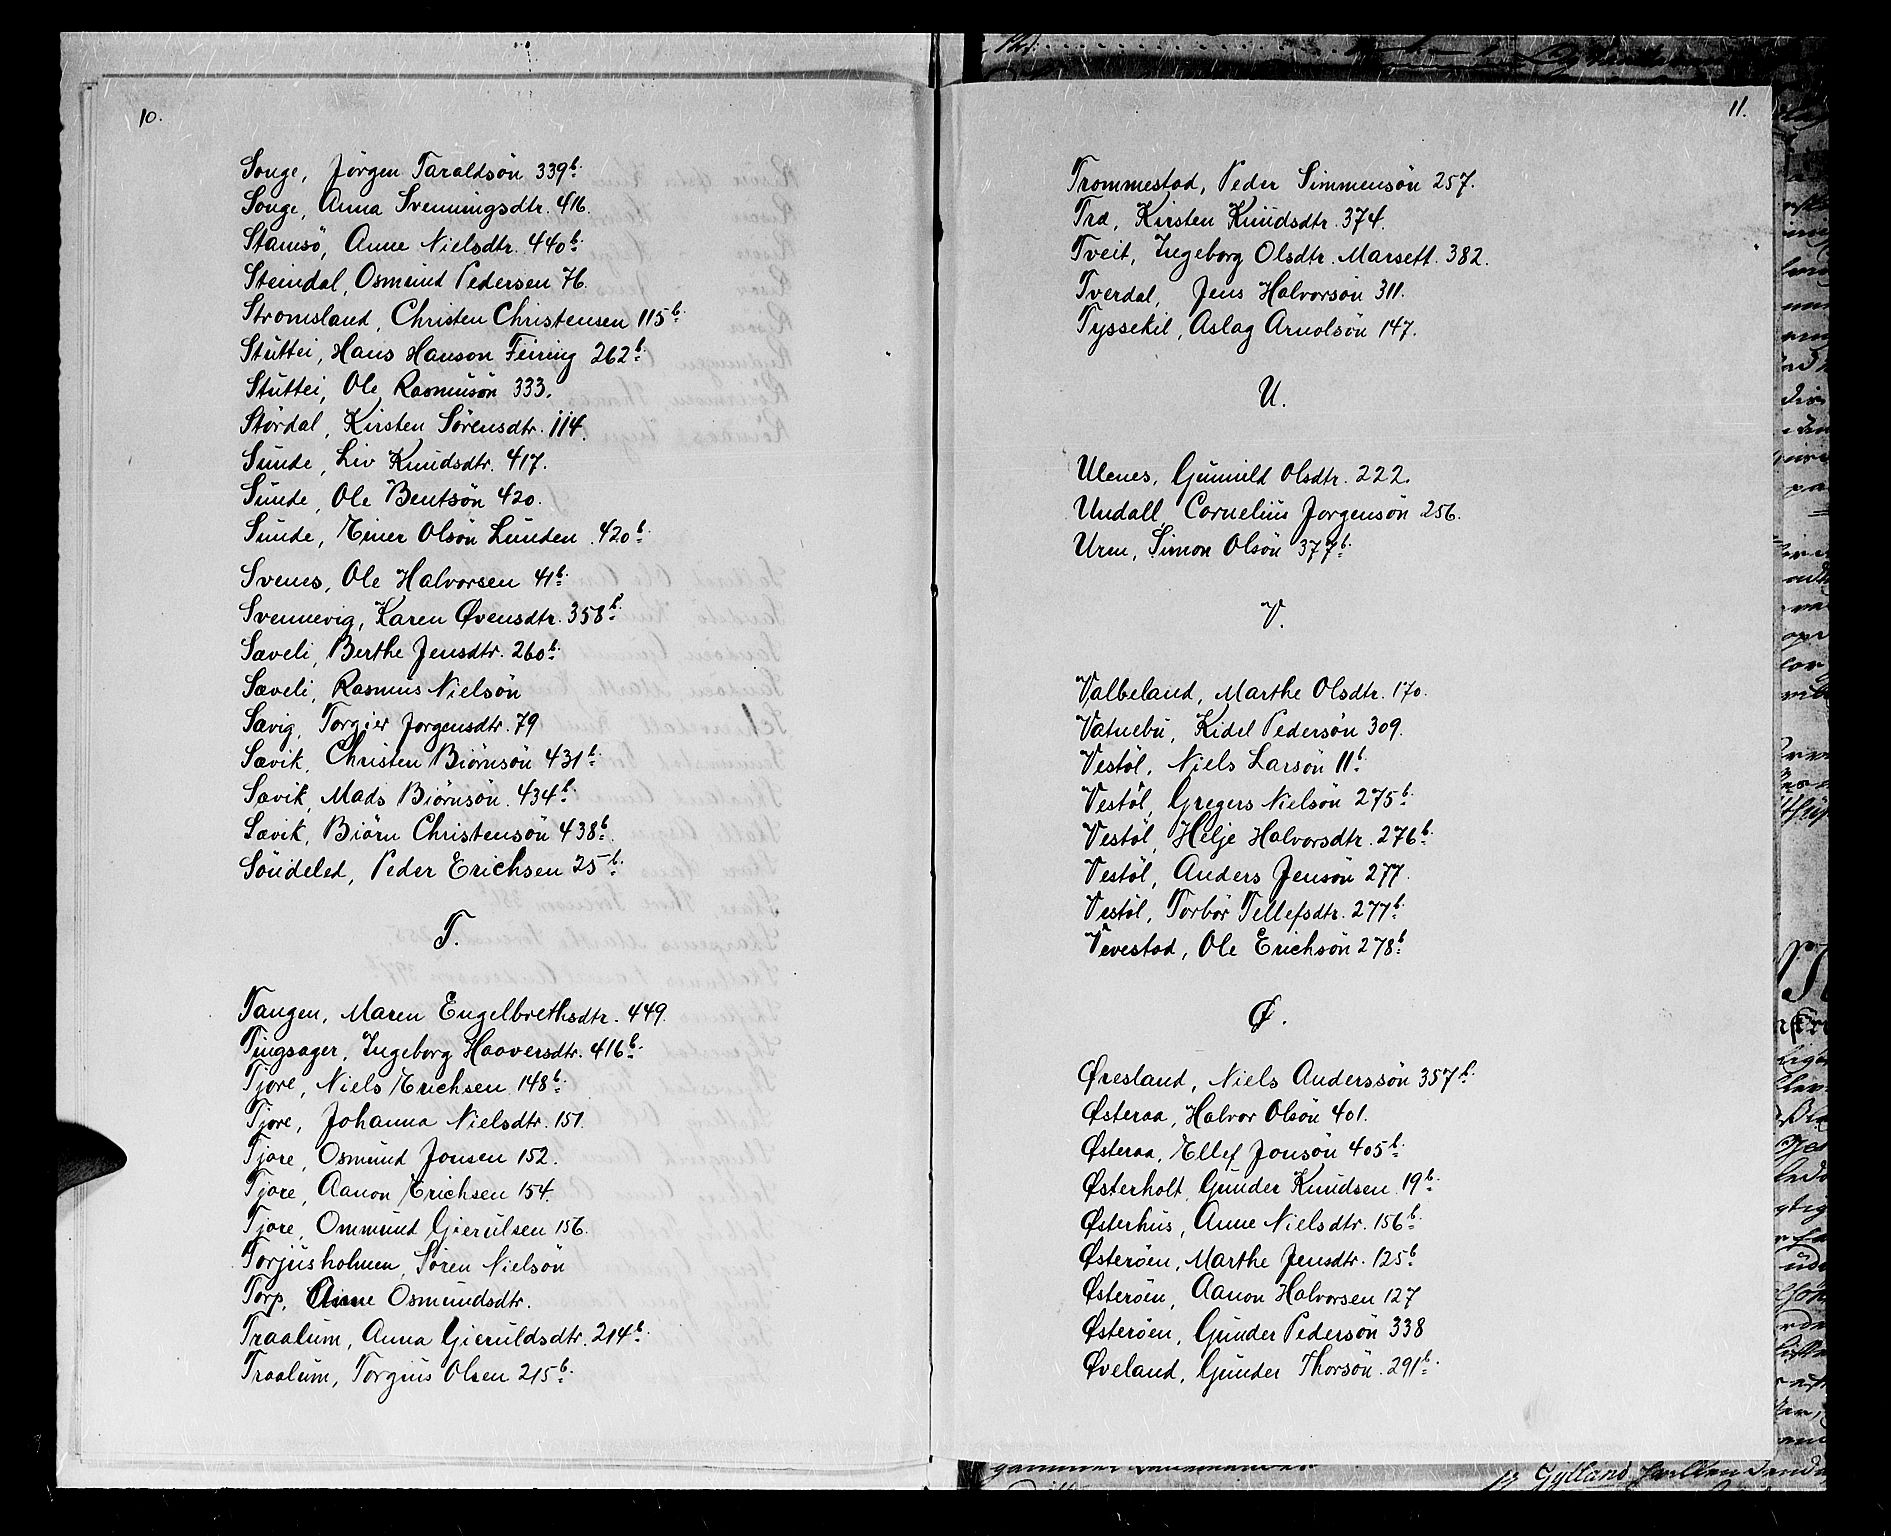 10.
Songe, Jörgen Taraldsön 339b.
Songe, Anna Svenningsdtr. 416.
Stamsö, Anne Nielsdtr. 440b.
Steindal, Osmund Pedersen 76.
Stromsland, Christen Christensen 115b.
Stuttei, Hans Hanson Feiring 262b.
Stuttei, Ole Rasmusön 333.
Stördal, Kirsten Sörensdtr. 114.
Sunde, Liv Knudsdtr. 417.
Sunde, Ole Bentsön 420.
Sunde, Einer Olsön Lunden 420b.
Svenes, Ole Halvorsen 41b.
Svennevig, Karen Øvensdtr. 358b.
Sæveli, Berthe Jensdtr. 260b.
Sæveli, Rasmus Nielsön
Sævig, Torgier Jorgensdtr. 79
Sævik, Christen Biörnsön 431b.
Sævik, Mads Biörnsön. 434b.
Sævik, Biörn Christensön 438b.
Söndeled, Peder Erichsen 25b.
T.
Tangen, Maren Engelbrethsdtr. 449.
Tingsager, Ingeborg Haaversdtr. 416b.
Tjore, Niels Erichsen 148b.
Tjore, Johanna Nielsdtr. 151.
Tjore, Osmund Jonsen 152.
Tjore, Aanon Erichsen 154.
Tjore, Ommund Gierulsen 156.
Torjusholmen, Sören Nielsön
Torp, Anne Osmundsdtr.
Traalum, Anna Gieruldsdtr. 214b.
Traalum, Torgius Olsen 215b.
11.
Trommestad, Peder Simmensön 257.
Træ, Kirsten Knudsdtr. 374.
Tveit, Ingeborg Olsdtr. Marsett. 382.
Tverdal, Jens Halvorsön 311.
Tyssekil, Aslag Arnolsön 147.
U.
Ulenes, Gunnild Olsdtr. 222.
Undall, Cornelius Jorgensön 256.
Urm, Simon Olsön 377b.
V.
Valbeland, Marthe Olsdtr. 170.
Vatnebu, Kidel Pedersön 309.
Vestöl, Niels Larsön 11b.
Vestöl, Gregers Nielsön 275b.
Vestöl, Helje Halvorsdtr. 276b.
Vestöl, Anders Jensön 277.
Vestöl, Torbör Tellefsdtr. 277b.
Vevestad, Ole Erichsön 278b.
Ø.
Øresland, Niels Anderssön 357b.
Østeraa, Halvor Olsön 401.
Østeraa, Ellef Jonsön 405b.
Østerholt, Gunder Knudsen 19b.
Østerhus, Anne Nielsdtr. 156b.
Østeröen, Marthe Jensdtr. 125b
Østeröen, Aanon Halvorsen 127
Østeröen, Gunder Pedersön 338
Øveland, Gunder Thorsön. 291b.
Gylland